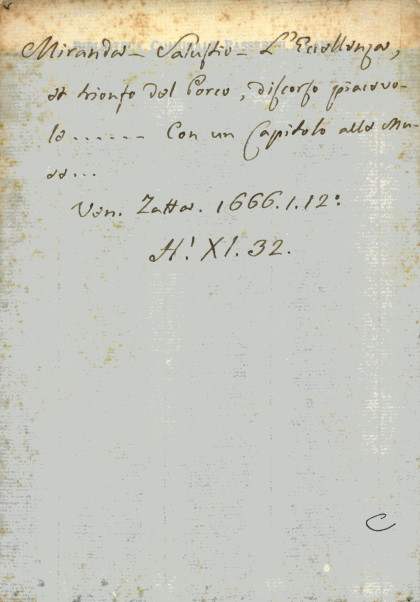 Miranda - Salustio - L'Eccellenza,
et trionfo del Porco, discorso piacevo-
le ...... Con un Capitolo alle Mu-
se...
Ven. Zatta. 1666. 1. 12°.
H! XI. 32.
C